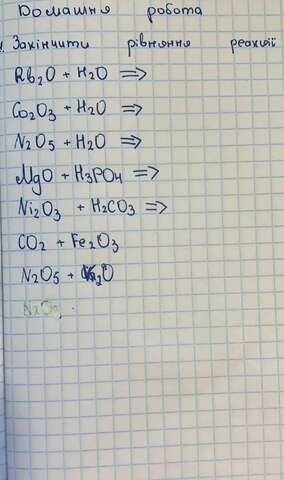 Домашня робота
1. Закінчити рівняння реакції
Rb2O + H2O =>
Co2O3 + H2O =>
N2O5 + H2O =>
MgO + H3PO4 =>
Ni2O3 + H2CO3 =>
CO2 + Fe2O3
N2O5 + K2O